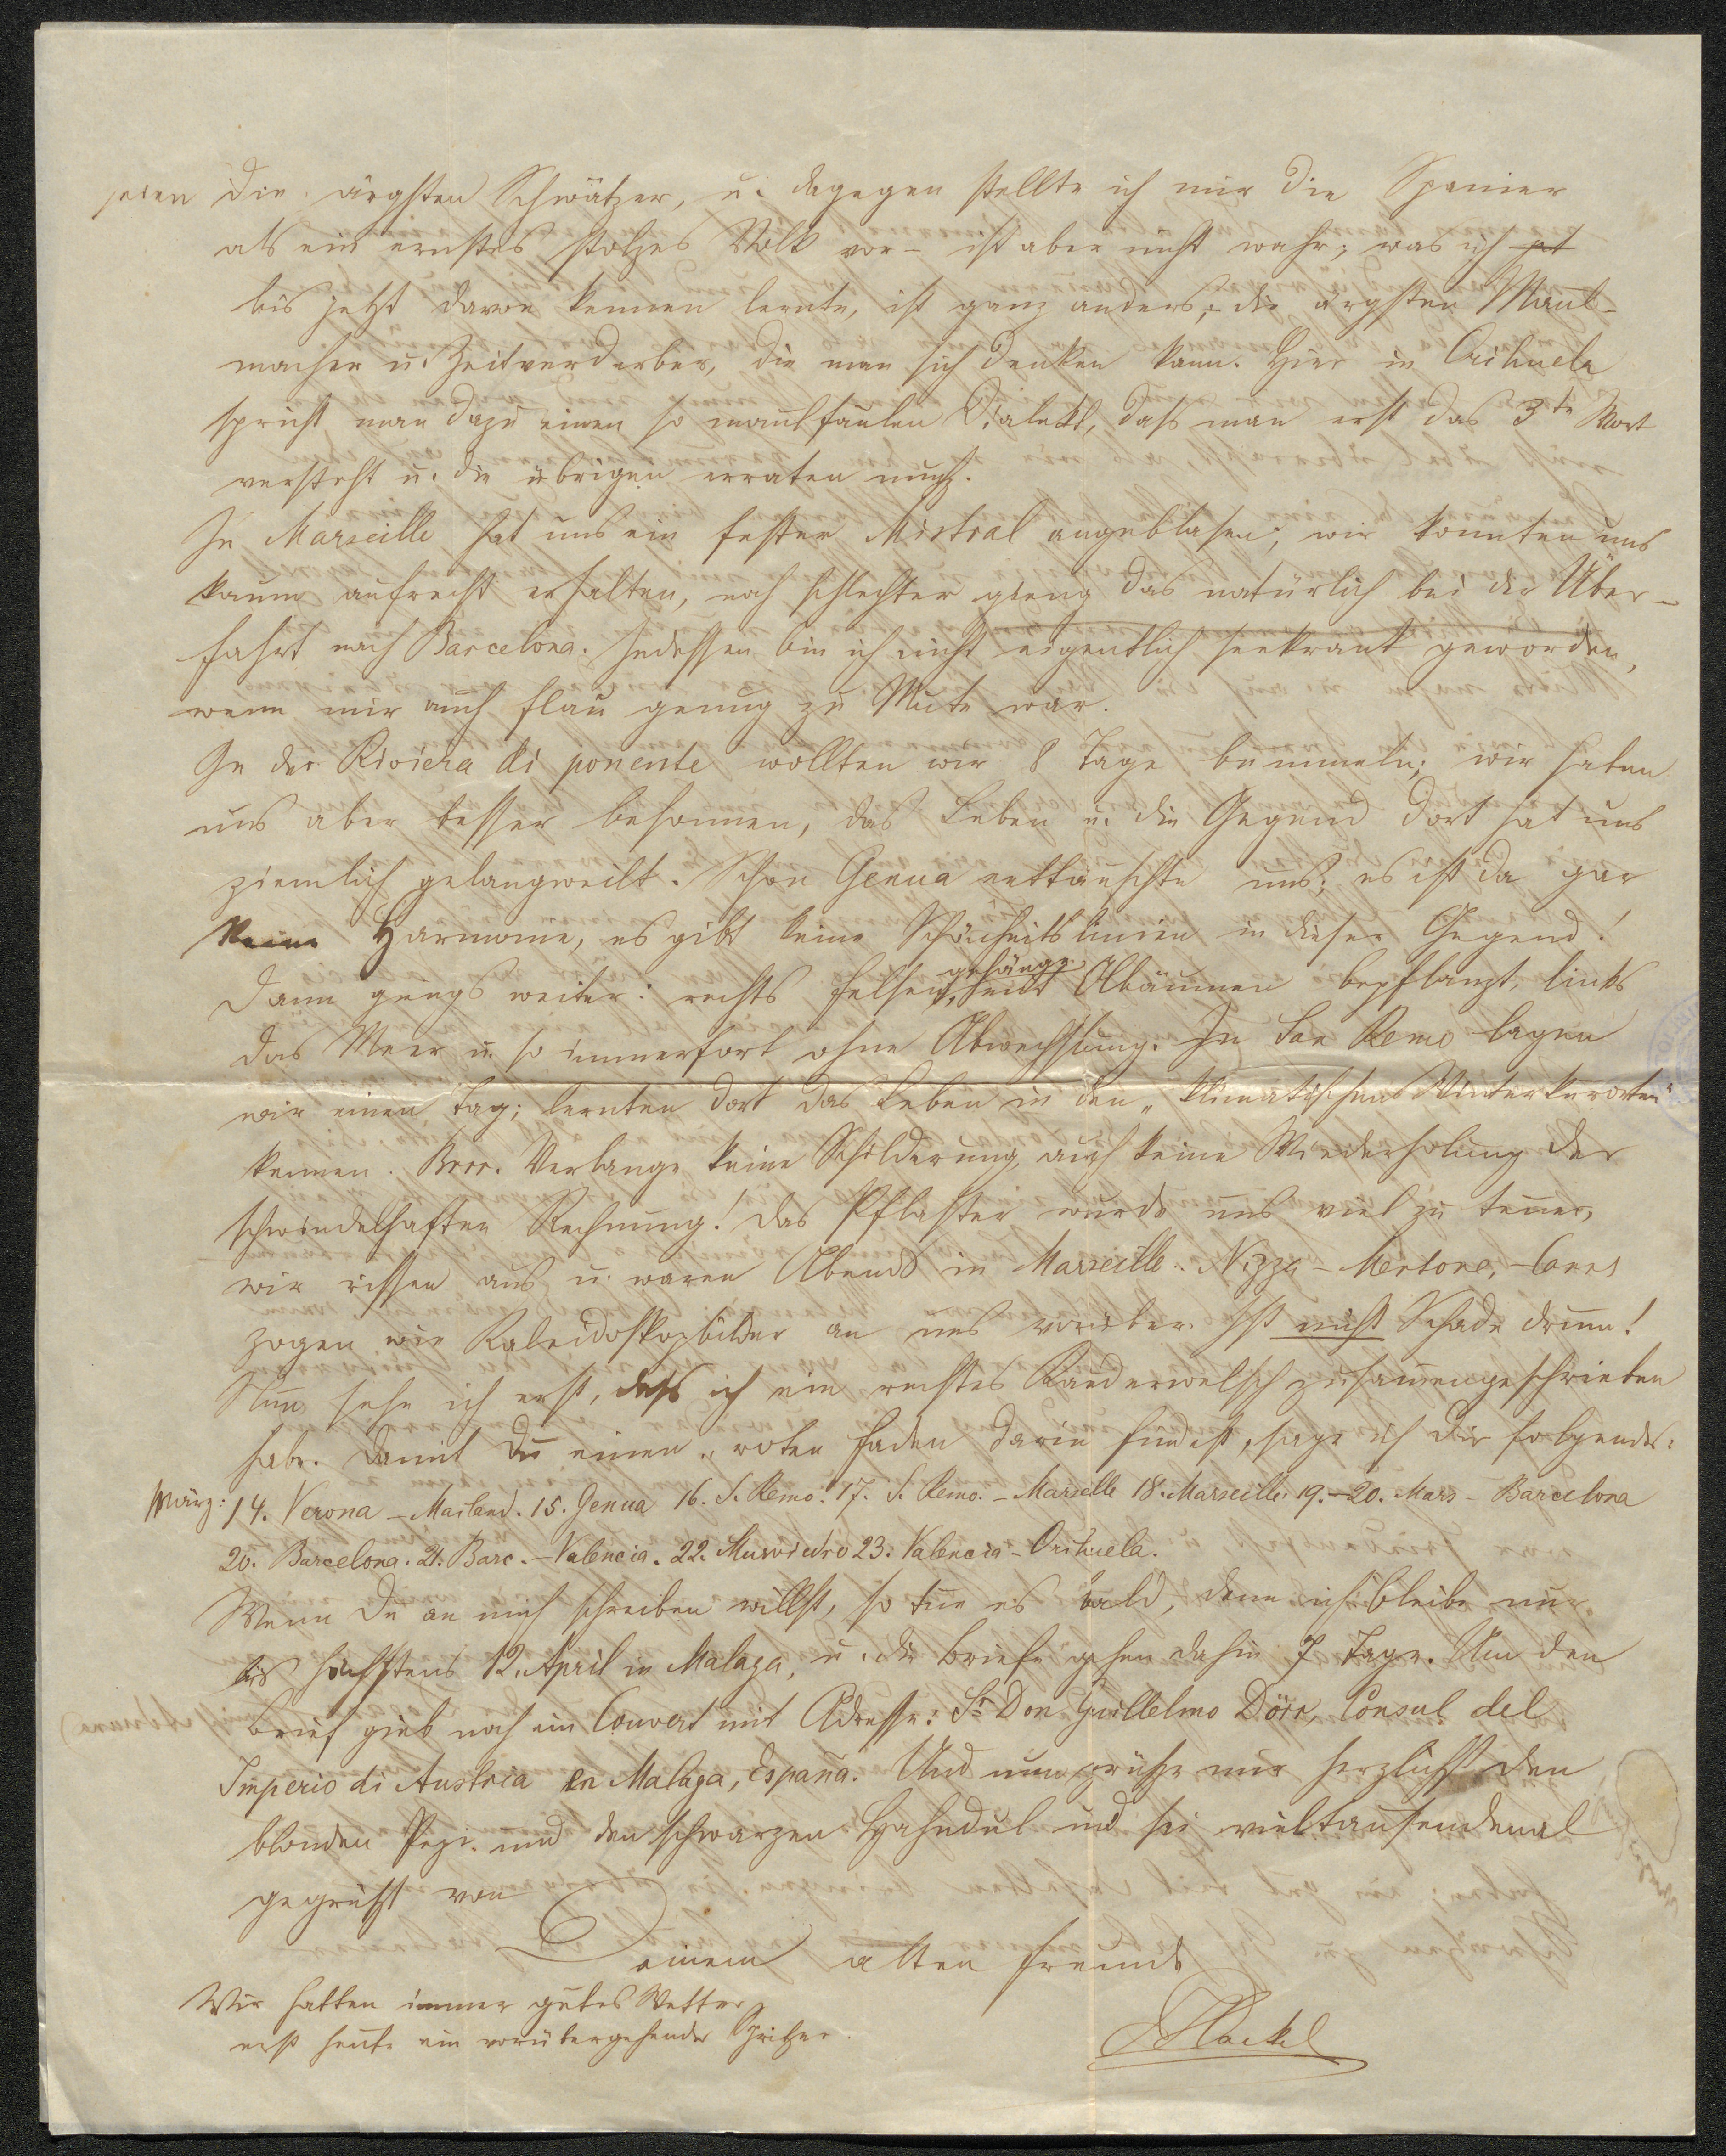 seien die ärgsten Schwätzer, u. dagegen stellte ich mir die Spanier
als ein ernstes stolzes Volk vor – ist aber nicht wahr; was ich
bis jetzt davon kennen lernte, ist ganz anders; die ärgsten Maul-
macher u. Zeitverderber, die man sich denken kann. Hier in Orihuela
spricht man dazu einen so maulfaulen Dialekt, dass man erst das 3te Wort
versteht u. die übrigen erraten muß.
In Marseille hat uns ein fester Mistral angeblasen; wir konnten uns
kaum aufrecht erhalten, noch schlechter gieng das natürlich bei der Über-
fahrt nach Barcelona. Indessen bin ich nicht eigentlich seekrank geworden,
wenn mir auch flau genug zu Mute war.
In der Riviera di ponente wollten wir 8 Tage bummeln; wir haben
uns aber besser besonnen, das Leben u. die Gegend dort hat uns
ziemlich gelangweilt. Schon Genua enttäuschte uns; es ist da gar
keine Harmonie, es gibt keine Schönheitslinien in dieser Gegend!
Dann giengs weiter: rechts Felsengehänge, mit Ölbäumen bepflanzt, links
das Meer u. so immerfort ohne Abwechslung. In San Remo lagen
wir einen Tag; lernten dort das Leben in den „klimatischen Winterkurorten“
kennen. Brrr. Verlange keine Schilderung, auch keine Wiederholung der
schwindelhaften Rechnung! Das Pflaster wurde uns viel zu teuer,
wir rissen aus u. waren Abends in Marseille. Nizza – Mentone, – Canes
zogen wie Kaleidoskopbilder an uns vorüber. Ist nicht Schade drum!
Nun sehe ich erst, dass ich ein rechtes Kauderwelsch zusammengeschrieben
habe. Damit Du einen „roten Faden darin findest, sage ich Dir folgendes:
März: 14. Verona – Mailand. 15. Genua 16. S. Remo. 17. S. Remo. – Marseille 18. Marseille. 19. – 20. Mars – Barcelona
20. Barcelona. 21. Barc. – Valencia. 22. Murviedro 23. Valencia – Orihuela.
Wenn Du an mich schreiben willst, so tue es bald, denn ich bleibe nur
bis höchstens 12. April in Malaga, u. die Briefe gehen dahin 7 Tage. Um den
Brief gieb noch ein Couvert mit Adresse: Sr Don Guillelmo Dörr, Consul del
Imperio di Austria en Malaga, España. Und nun grüße mir herzlichst den
blonden Pepi und den schwarzen und sei vieltausendmal
gegrüßt von
Deinem alten Freunde
Hackel
Wir hatten immer gutes Wetter,
erst heute ein vorübergehender Spritzer.